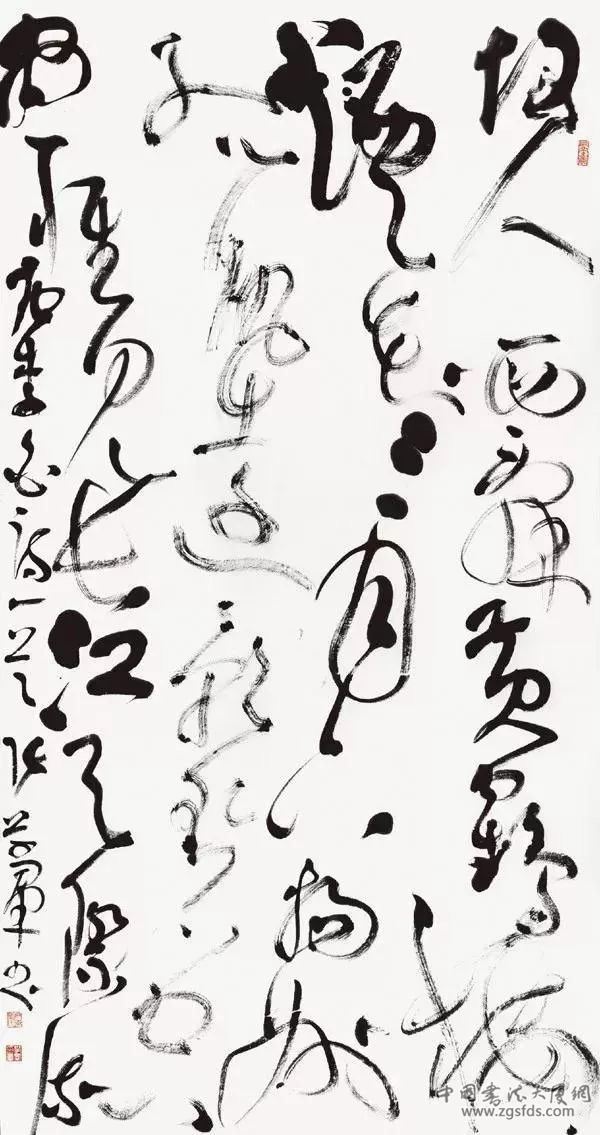 故人西辞黄鹤楼
煙花三月下揚州
孤帆遠影碧空
尽唯見长江天际流
李白诗一首
中国书法大厦網
www.zgsfds.com